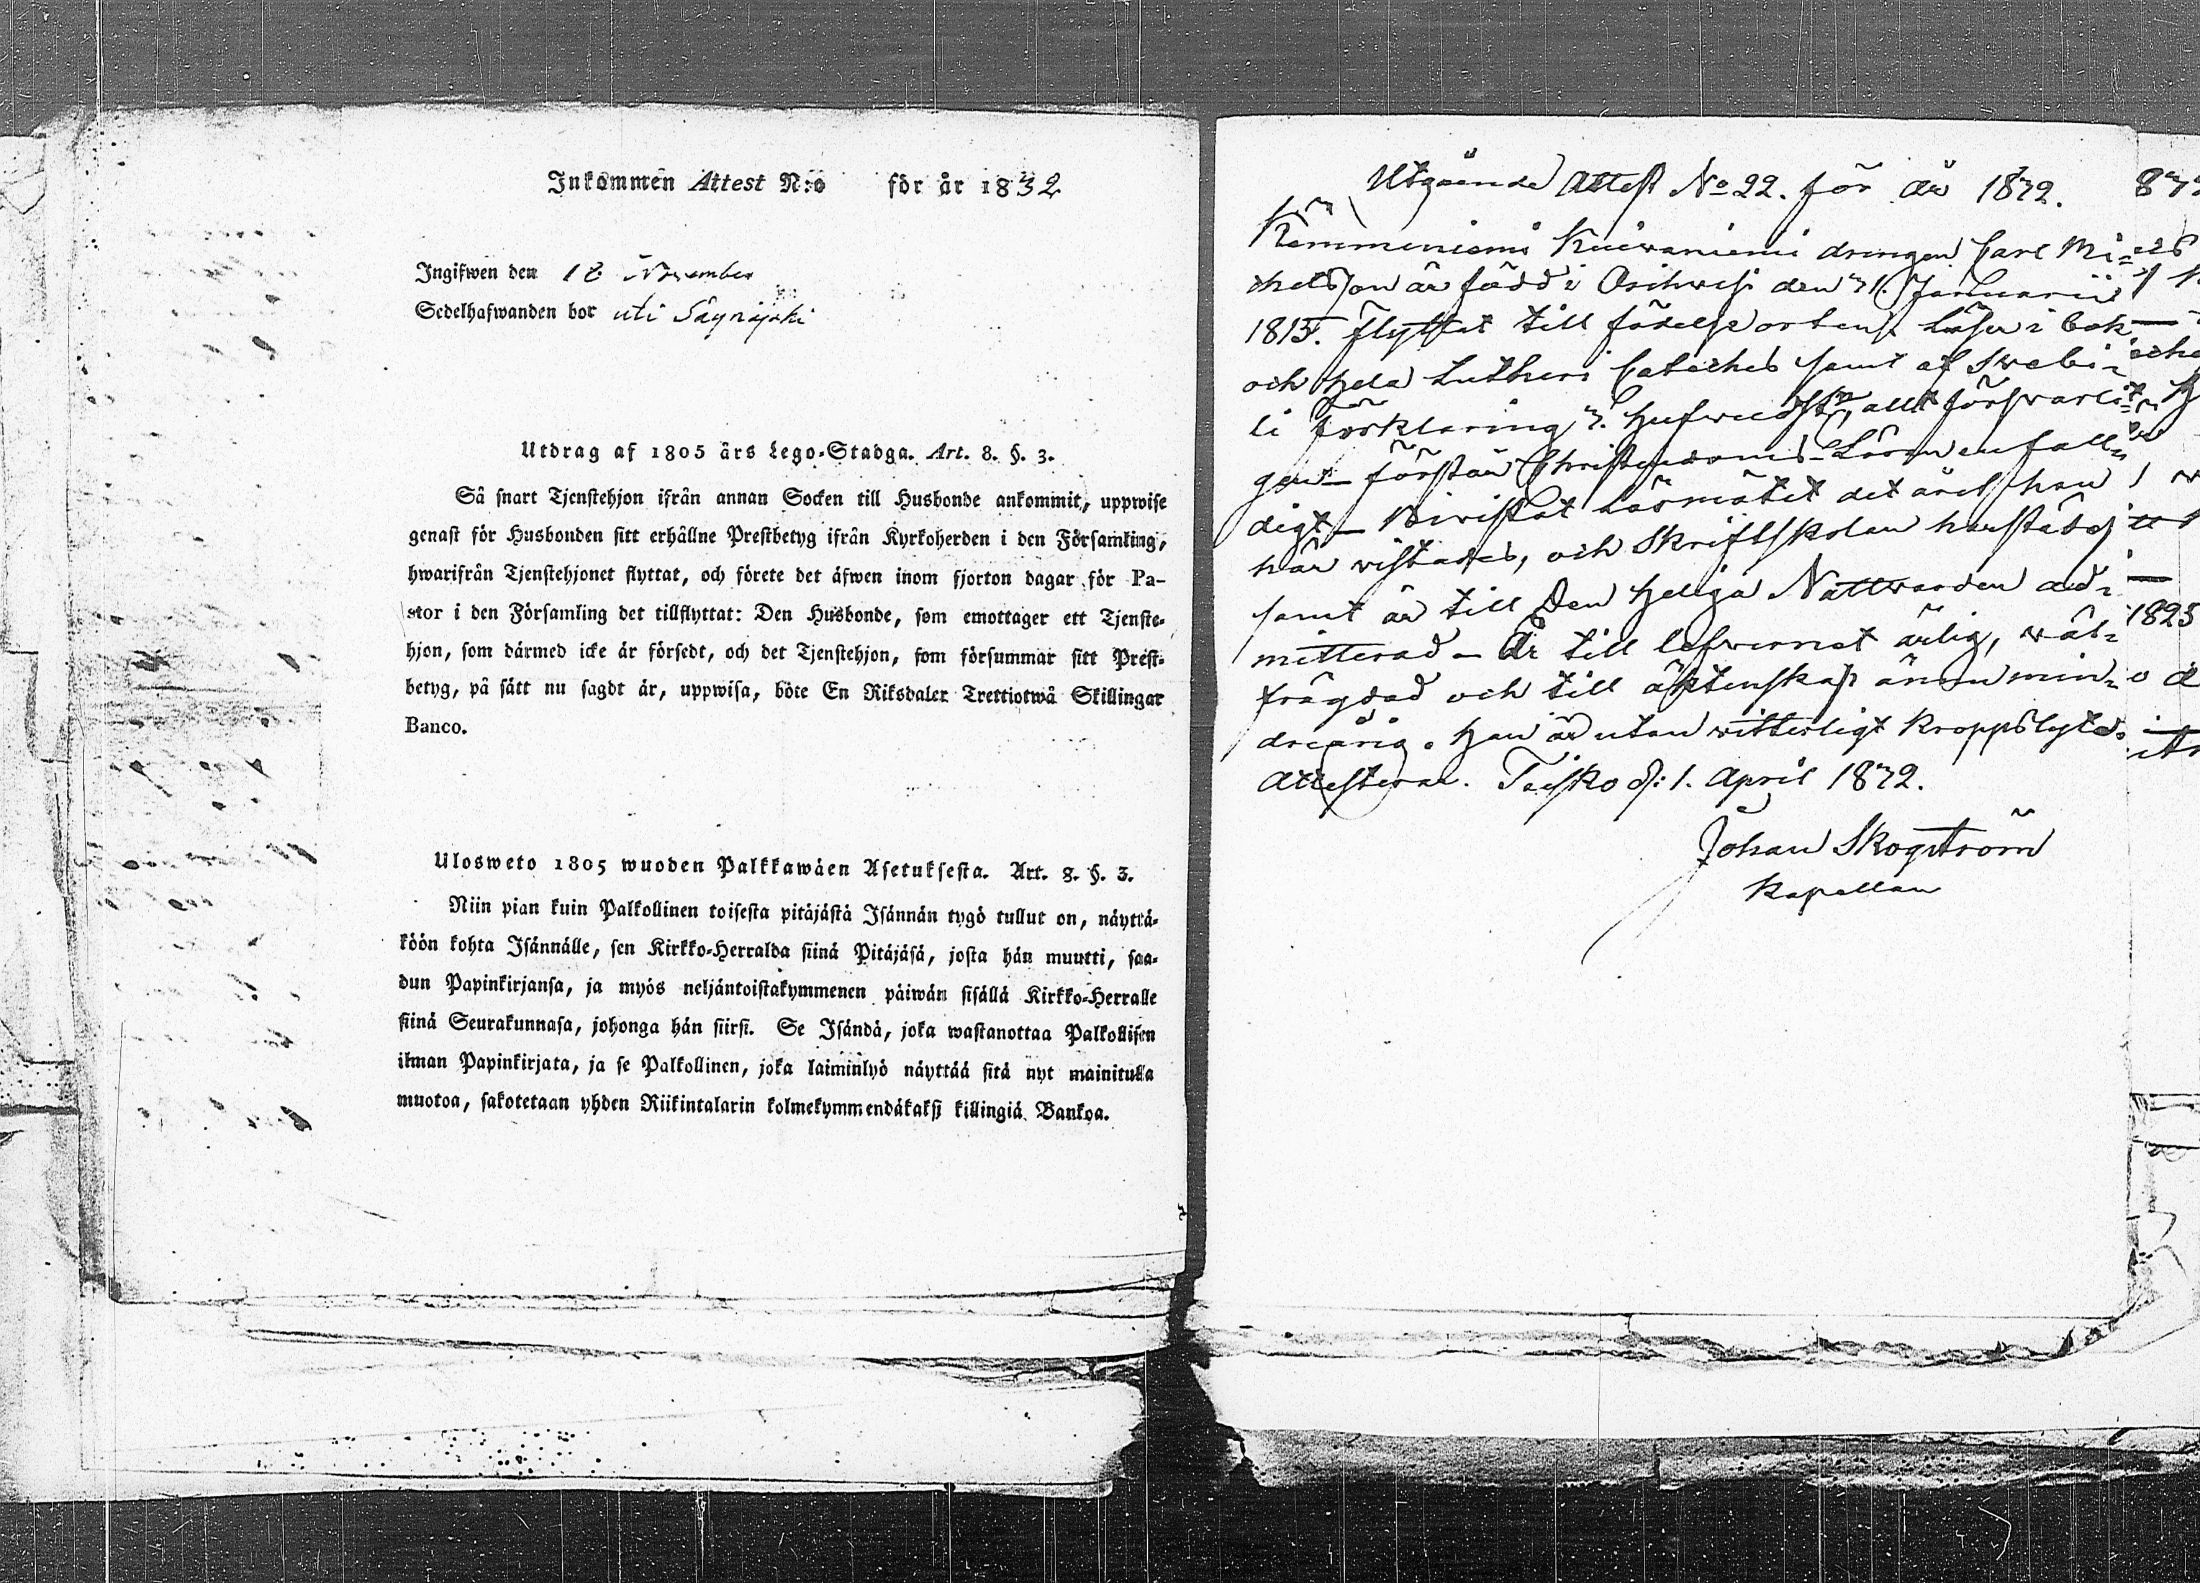 Inkommen Attest N:o för år 1832
Ingifwen den 18 November
Sedelhafwanden bor uti Säynäjoki
Utdrag af 1805 års Lego-Stadga. Art. 8. §. 3.
Så snart Tjenstehjon ifrån annan Socken till Husbonde ankommit, uppwise
genast för Husbonden sitt erhållne Prestbetyg ifrån Kyrkoherden i den Församling,
hwarifrån Tjenstehjonet flyttat, och förete det äfwen inom fjorton dagar för Pa-
stor i den Församling det tillflyttat: Den Husbonde, som emottager ett Tjenste-
hjon, som därmed icke är försedt, och det Tjenstehjon, som försummar sitt Prest-
betyg, på sätt nu sagdt är, uppwisa, böte En Riksdaler Trettiotwå Skillingar
Banco.
Ulosweto 1805 wuoden Palkkawäen Asetuksesta. Art. 8. §. 3.
Niin pian kuin Palkollinen toisesta pitäjästä Isännän tygö tullut on, näyttä-
köön kohta Isännälle, sen Kirkko-Herralda siinä Pitäjäsä, josta hän muutti, saa-
dun Papinkirjansa, ja myös neljäntoistakymmenen päiwän sisällä Kirkko-Herralle
siinä Seurakunnasa, johonga hän siirsi. Se Isändä, joka wastanottaa Palkollisen
ilman Papinkirjata, ja se Palkollinen, joka laiminlyö näyttää sitä nyt mainitulla
muotoa, sakotetaan yhden Riikintalarin kolmekymmendäkaksi killingiä Bankoa.
Utgående Attest No 22. för år 1832.
Kämmeniemi Kuivaniemi drengen Carl Mi=
chelsson är född i Orihwesi den 31. Januarii
1815. flyttat till födelse orten. Läser i bok
och hela Lutheri Catechес samt af Swebi=
li förklaring 3. hufwudst:n, allt förswarli=
gen – förstår Christendoms-Läran enfall=
digt – Biwistat Läsmötet det året han
här vistades, och Skriftskolan härstädes
samt är till Den Heliga Nattwarden ad=
mitterad – Är till lefwernet ärlig, wäl=
frägdad och till äktenskap ännu min=
dreårig. Han är utan witterligt kroppslyte.
Attesterar. Teisko d: 1. April 1832.
Johan Skogström
Kapellan